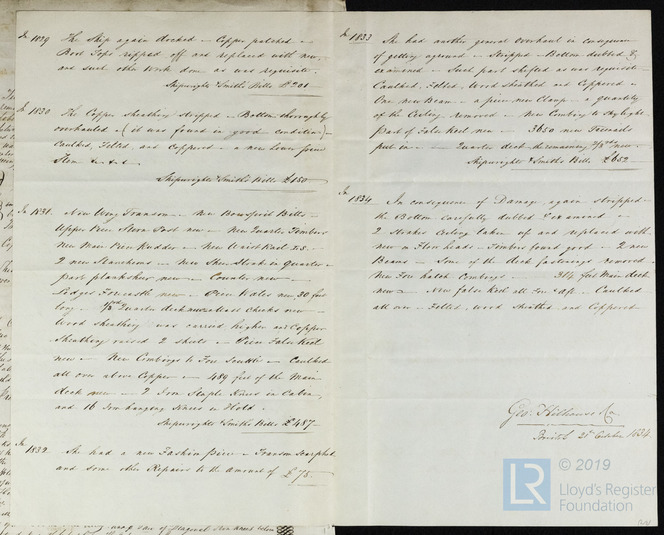 In 1829 The Ship again docked - Copper patched -
Boot Tops ripped off and replaced with new,
and such other Work done as was requisite.
Shipwright & Smiths Bills £201
In 1830 The Copper Sheathing stripped - Bottom thoroughly
overhauled - (it was found in good condition)
Caulked, Felted, and Coppered - a new Lower piece
Stem &c &c
Shipwright & Smiths Bills £450
In 1831. New Wing Transom - New Bowsprit Bitts -
Upper Piece Stern Post new - New Quarter Timbers
New Main Piece Rudder - New Waist Rail
2 new Stanchions - New Sheer Strake in Quarter -
part plank sheer new - Counter new -
Ledges Forecastle new - Wales new 30 feet
long - 1/2 Quarter deck new Mast cheeks new -
Wood sheathing was carried higher and Copper
Sheathing raised 2 sheets - False Keel
new - New Combings to Fore Scuttle - Caulked
all over above Copper - 489 feet of the Main
deck new - 2 Iron Staple Knees in Cabin,
and 16 Iron hanging Knees in Hold.
Shipwright & Smiths Bills £487
In 1832. She had a new Fashion piece - Transom scarphed
and some other Repairs to the amount of £75.
In 1833 She had another general overhaul in consequence
of getting aground - Stripped - Bottom dubbed &
examined - Such part shifted as was requisite
Caulked, Felted, Wood sheathed and Coppered -
One new Beam - a piece new Clamp - a quantity
of the Ceiling removed - New Combing to Skylight
Part of False Keel new - 3650 new Treenails
put in - Quarter deck the remaining new -
Shipwrights & Smiths Bills £652
In 1834. In consequence of Damage again stripped -
the Bottom carefully dubbed & examined -
2 Strakes Ceiling taken off and replaced with
new on Floor heads - Timbers found good - 2 new
Beams - Some of the deck fastenings removed -
New Fore hatch Combings - 314 feet Main deck
new - New false keel all Fore & Aft - Caulked
all over - Felted, wood sheathed and Coppered
Geo. Hilhouse & Co
Bristol 21st October 1834.
© 2019
LR
Lloyd's Register
Foundation